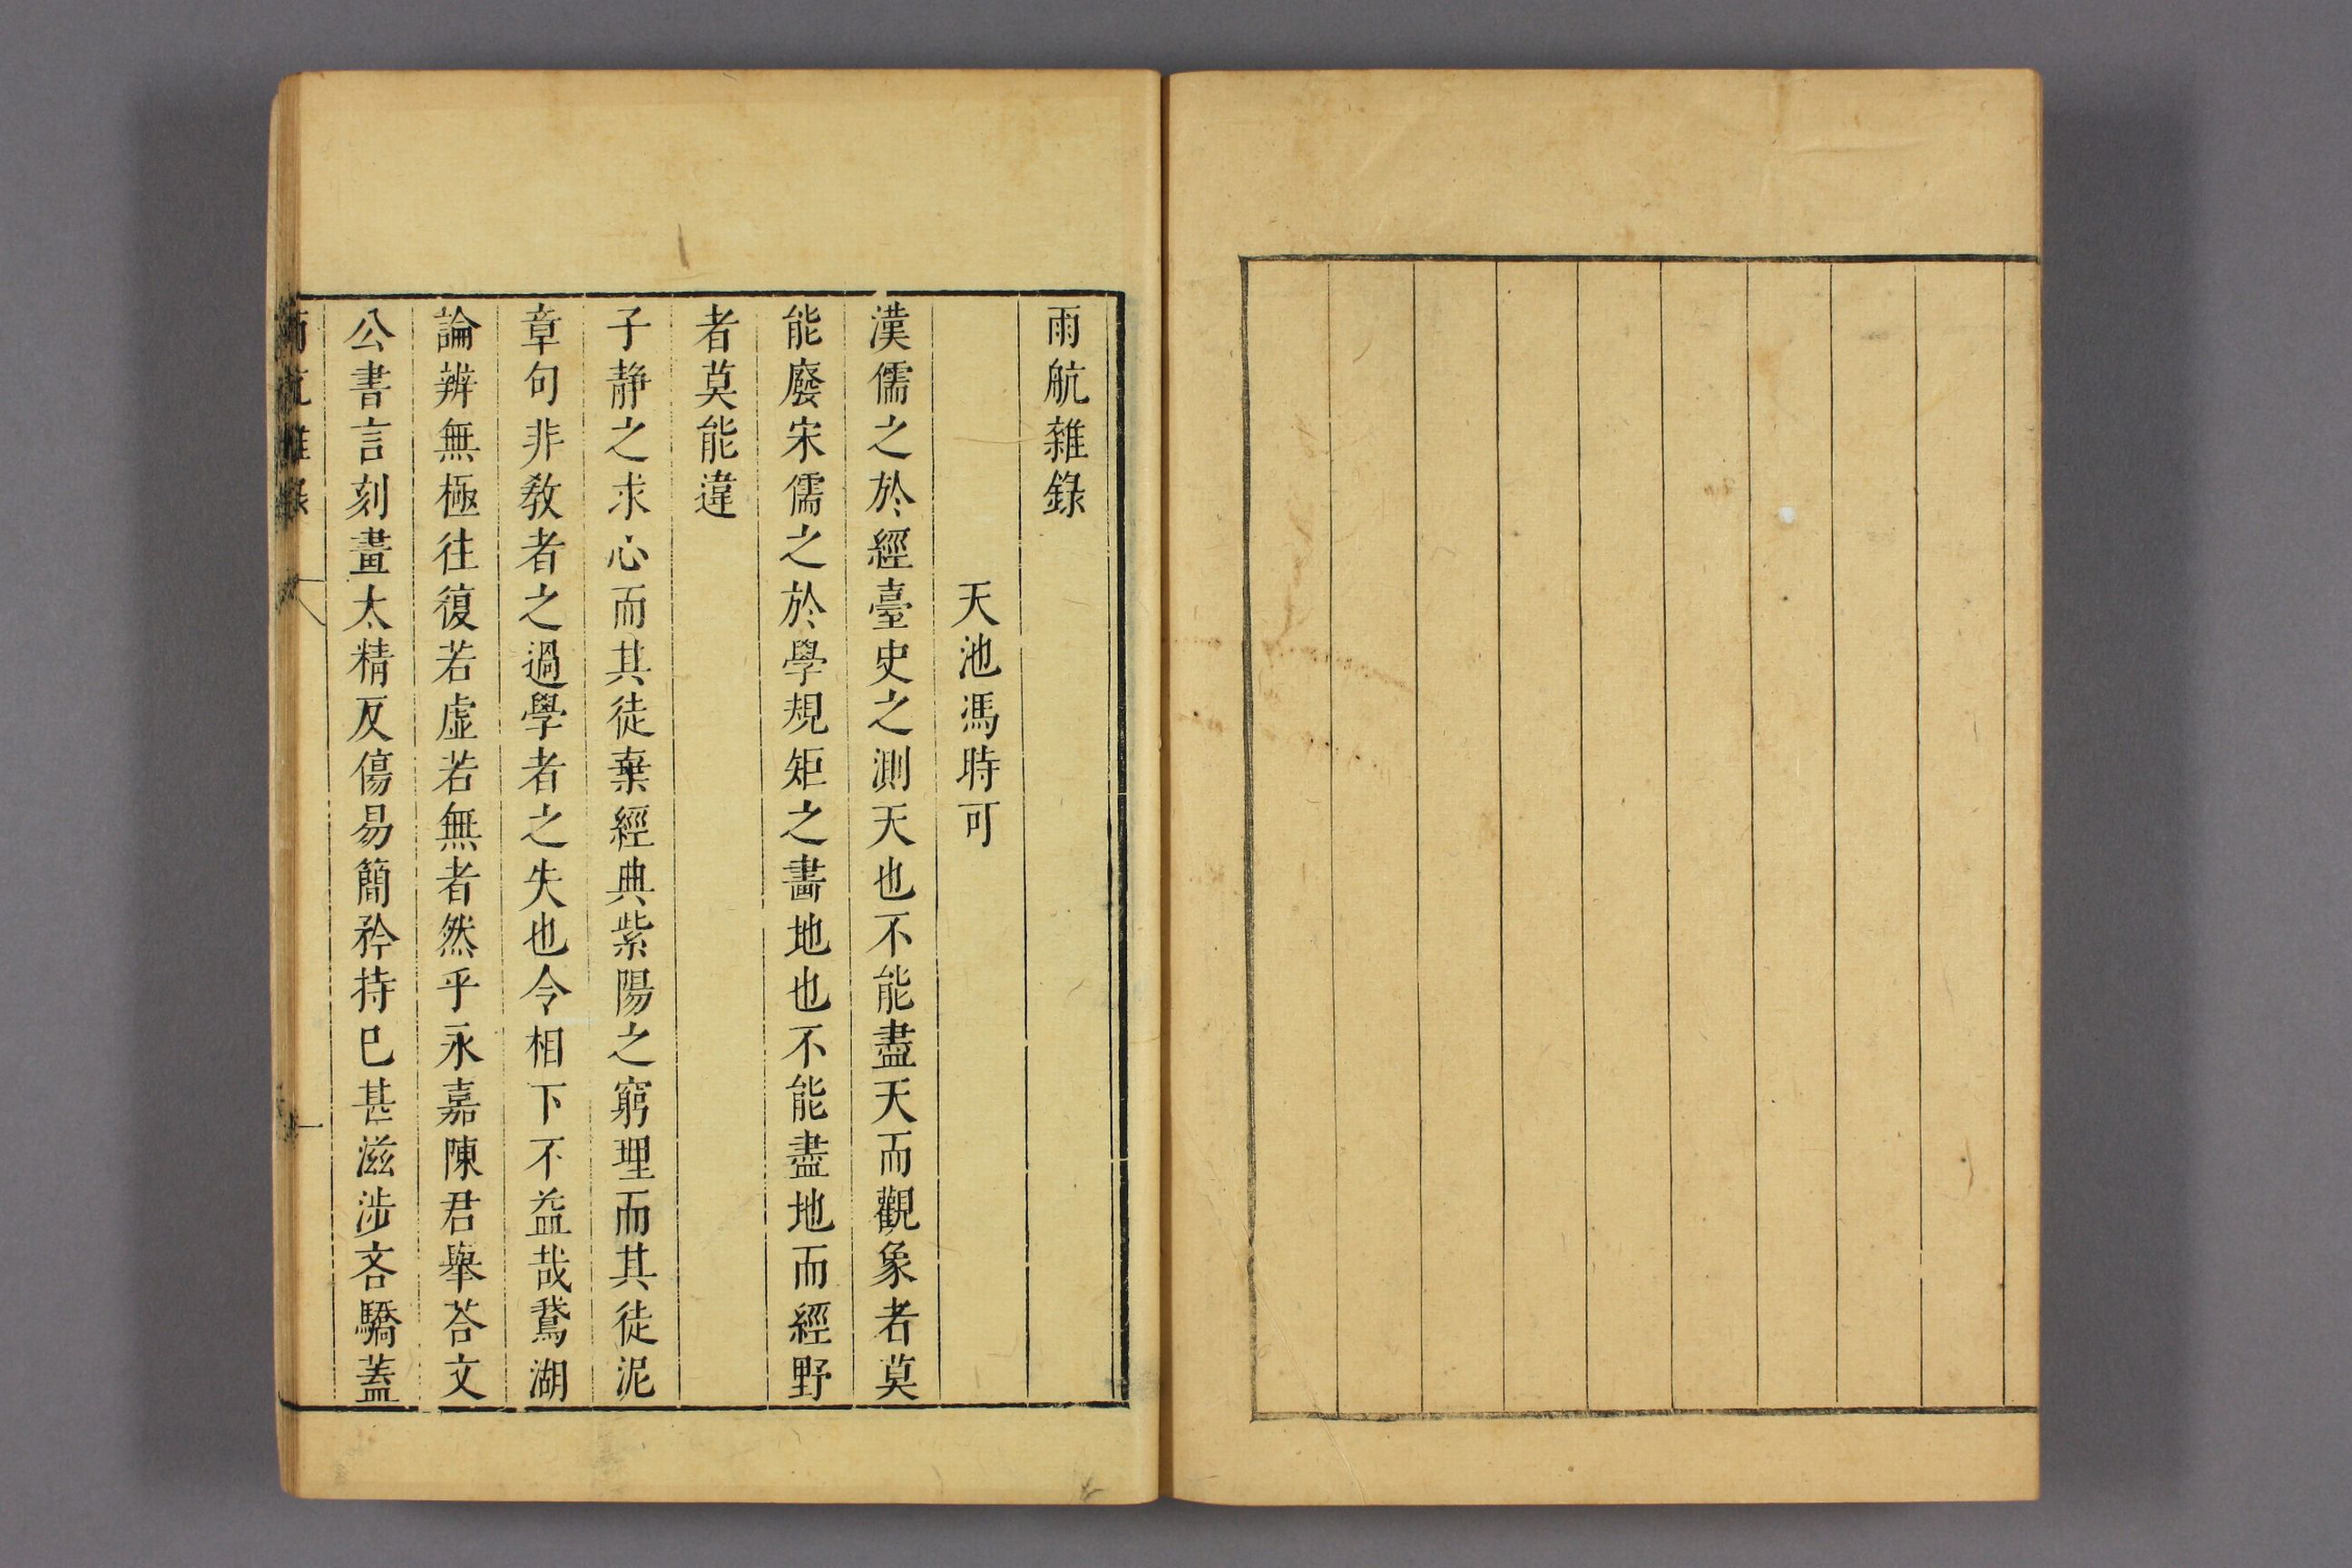 雨航雜錄
天池馮時可
漢儒之於經臺史之測天也不能盡天而觀象者莫
能廢宋儒之於學規矩之畫地也不能盡地而經野
者莫能違
子静之求心而其徒棄經典紫陽之窮理而其徒泥
章句非教者之過學者之失也令相下不益哉鵞湖
論辨無極往復若虛若無者然乎永嘉陳君舉荅文
公書言刻畫太精反傷易簡矜持已甚滋涉吝驕蓋
雨航雜錄
一